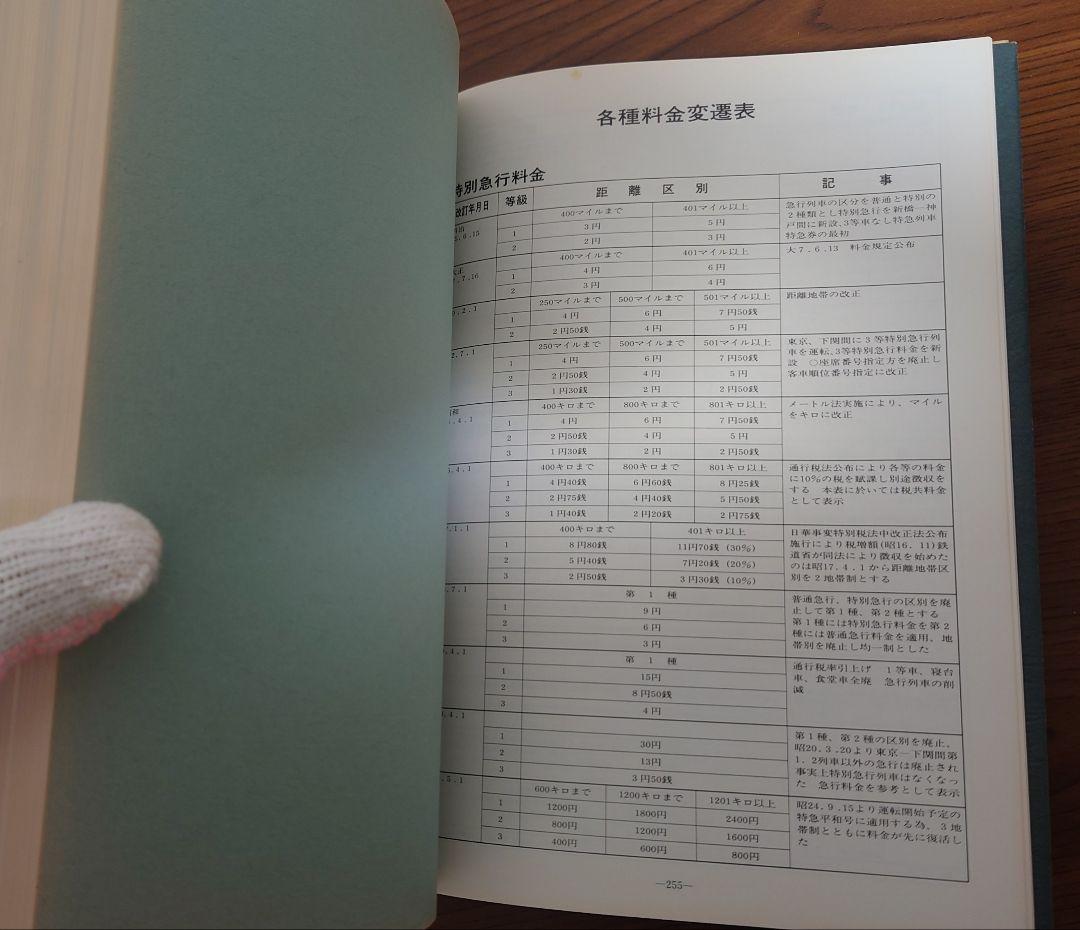 各種料金変遷表
特別急行料金
改訂年月日 等級 距離区別 記事
400マイルまで 401マイル以上
.6.15 1 3円 5円
2 2円 3円
急行列車の区分を普通と特別の
2種類とし特別急行を新橋―神
戸間に新設、3等車なし特急列車
特急券の最初
400マイルまで 401マイル以上
.7.16 1 4円 6円
2 3円 4円
大7.6.13 料金規定公布
250マイルまで 500マイルまで 501マイル以上
.2.1 1 4円 6円 7円50銭
2 2円50銭 4円 5円
距離地帯の改正
250マイルまで 500マイルまで 501マイル以上
.7.1 1 4円 6円 7円50銭
2 2円50銭 4円 5円
3 1円30銭 2円 2円50銭
東京、下関間に3等特別急行列
車を運転、3等特別急行料金を新
設 ○座席番号指定方を廃止し
客車順位番号指定に改正
400キロまで 800キロまで 801キロ以上
.4.1 1 4円 6円 7円50銭
2 2円50銭 4円 5円
3 1円30銭 2円 2円50銭
メートル法実施により、マイル
をキロに改正
400キロまで 800キロまで 801キロ以上
.4.1 1 4円40銭 6円60銭 8円25銭
2 2円75銭 4円40銭 5円50銭
3 1円40銭 2円20銭 2円75銭
通行税法公布により各等の料金
に10%の税を賦課し別途徴収を
する 本表に於いては税共料金
として表示
400キロまで 401キロ以上
.1.1 1 8円80銭 11円70銭(30%)
2 5円40銭 7円20銭(20%)
3 2円50銭 3円30銭(10%)
日華事変特別税法中改正法公布
施行により税増額(昭16.11)鉄
道省が同法により徴収を始めた
のは昭17.4.1から距離地帯区
別を2地帯制とする
第1種
.7.1 1 9円
2 6円
3 3円
普通急行、特別急行の区別を廃
止して第1種、第2種とする
第1種には特別急行料金を第2
種には普通急行料金を適用、地
帯別を廃止し均一制とした
第1種
.4.1 1 15円
2 8円50銭
3 4円
通行税率引上げ 1等車、寝台
車、食堂車全廃 急行列車の削
減
.4.1 1 30円
2 13円
3 3円50銭
第1種、第2種の区別を廃止、
昭20.3.20より東京―下関間第
1.2列車以外の急行は廃止され
事実上特別急行列車はなくなっ
た 急行料金を参考として表示
600キロまで 1200キロまで 1201キロ以上
.5.1 1 1200円 1800円 2400円
2 800円 1200円 1600円
3 400円 600円 800円
昭24.9.15より運転開始予定の
特急平和号に適用する為、3地
帯制とともに料金が先に復活し
た
―255―